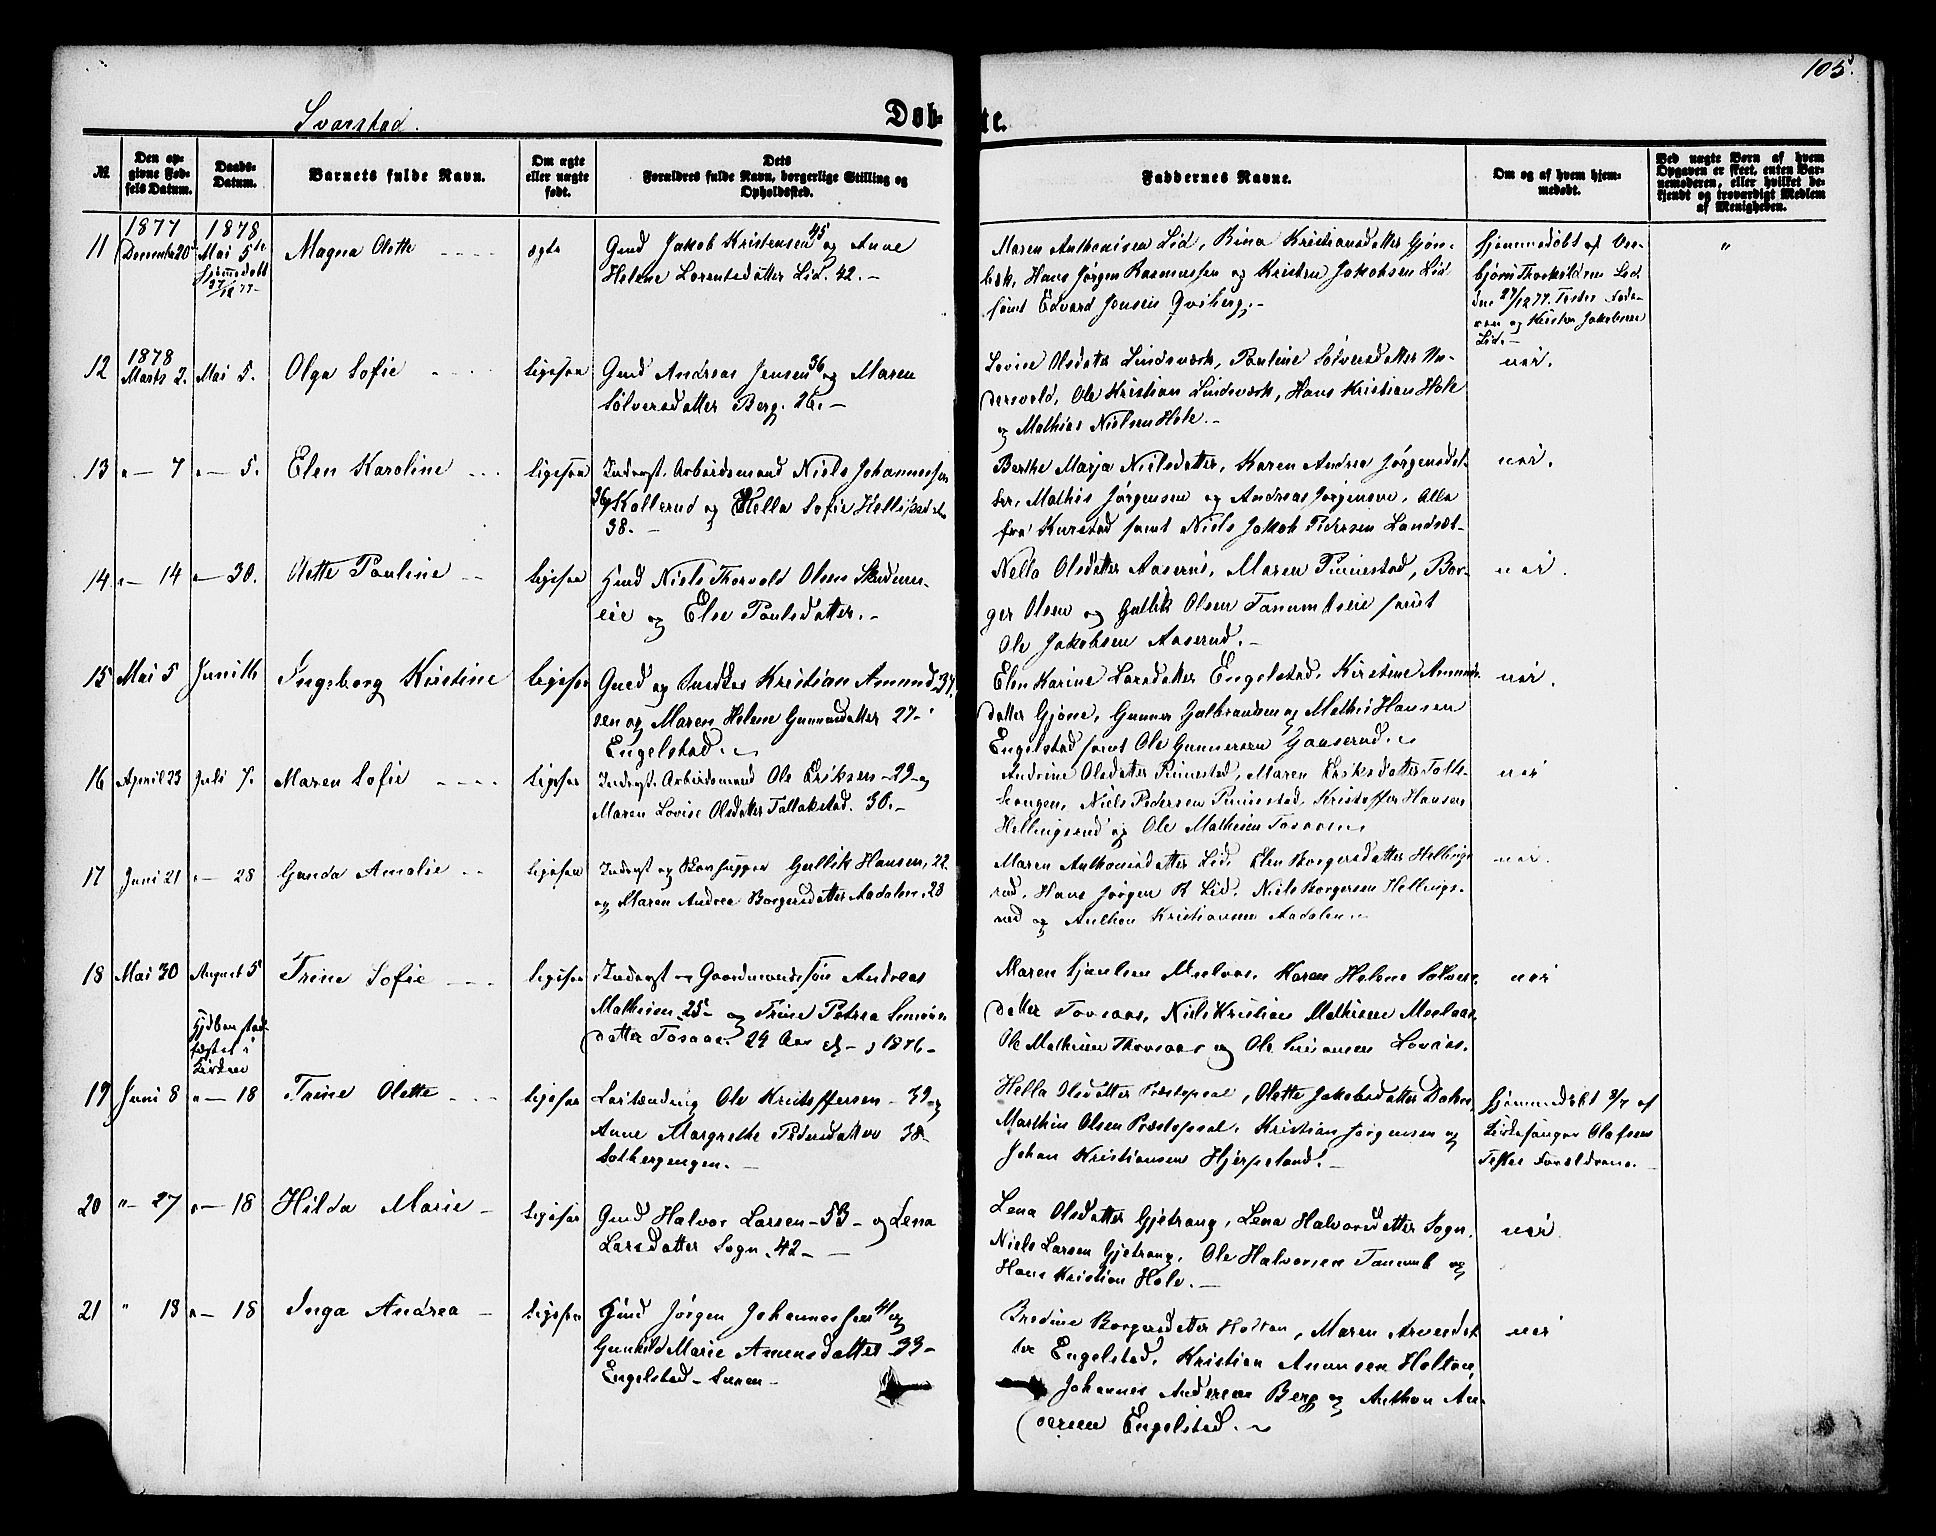 105.
Svarstad.
Døb-
te.
№
Den opgivne Fødsels Datum.
Daabs-Datum.
Barnets fulde Navn.
Om ægte eller uægte født.
Dets Forældres fulde Navn, borgerlige Stilling og Opholdssted.
Faddernes Navne.
Om og af hvem hjemmedøbt.
Ved uægte Børn af hvem Opgaven er skeet, enten Barnemoderen, eller hvilket bekjendt og troværdigt Medlem af Menigheden.
1877 1878
11 Decembr 20 Mai 5te Magna Olette ægte Gmd Jakob Kristensen 45 og Anne
Hjemmedøbt 27/12 77 Helene Lorentsdatter Lid. 42.
Maren Anthonisen Lid, Rina Kristiansdatter Gjøn-
bæk, Hans Jørgen Rasmussen og Kristen Jakobsen Lid
samt Edvard Jensen Qviberg.
Hjemmedøbt af
bjørn Lid
den 27/12 77. Testes Fade-
ren og Kristen Jakobsen
Lid.
"
1878
12 Marts 2. Mai 5. Olga Sofie ligesaa Gmd Andreas Jensen 36 og Maren
Sølversdatter Berg. 26.
Lovise Olsdatter Lindsværk, Pauline Sølversdatter Un-
dersvold, Ole Kristian Lindsværk, Hans Kristian Hole
og Mathias Nielsen Hole.
nei.
13 " 7 " 5. Elen Karoline ligesaa Inderst. Arbeidsmand Niels Johannessen
36 Kollerud og Hella Sofie
38.
Berthe Marja Nielsdatter, Karen Andrea Jørgensdat-
ter, Mathis Jørgensen og Andreas Jørgensen, Alle
fra Kurstad samt Niels Jakob Pedersen Landsæt
nei.
14 " 14 " 30. Olette Pauline ligesaa Hmd Niels Thorvald Olsen
eie og Else Paulsdatter.
Nella Olsdatter Aaserud, Maren Pinnestad, Bor-
ger Olsen og Gullik Olsen samt
Ole Jakobsen Aaserud.
nei.
15 Mai 5 Juni 16 Ingeborg Kristine ligesaa Gmd og Snedker Kristian Amund- 37
sen og Maren Helene Gunnersdatter 27
Engelstad.
Elen Karine Larsdatter Engelstad, Kirstine Amunds-
datter Gjone, Gunner Gulbrandsen og Mathis Hansen
Engelstad samt Ole Gunnersen Gaaserud.
nei.
16 April 23 Juli 7. Maren Sofie ligesaa Inderst. Arbeidsmand Ole Eriksen 29 og
Maren Lovise Olsdatter Tollakstad. 30.
Andrine Olsdatter Pinnestad, Maren Eriksdatter
Niels Pedersen Pinnestad, Kristoffer Hansen
Hellingsrud og Ole Mathisen
nei
17 Juni 21 " 28 Gunda Amalie ligesaa Inderst og Gullik Hansen, 22
og Maren Andrea Borgersdatter Aadalen, 28
Maren Anthonisdatter Lid, Elen Borgersdatter Hellings-
rud, Hans Jørgen R Lid. Niels Borgersen Hellings-
rud og Anthon Kristiansen Aadalen.
nei.
18 Mai 30 August 5 Trine Sofie ligesaa Inderst Gaardmandssøn Andreas
Mathisen 25 og Trine Petrea Simons-
datter Tosaas. 24 Aar 1876
Maren Meelaas, Karen Helene Sølvers-
datter Tovsaas, Niels Kristian Mathisen Meelaas
Ole Mathisen Thovsaas og Ole Simonsen
nei
Hjdben stad-
fæstet i
Kirken
19 Juni 8 " 18 Trine Olette ligesaa Ole Kristoffersen 39 og
Anne Margrethe Pedersdatter 38
Solbergengen.
Hella Olsdatter Olette Jakobsdatter
Marthin Olsen Kristian Jørgensen og
Johan Kristiansen Hjerpeland.
Hjemmedøbt 8/7 af
Kirkesanger Olafsen
Testes Forældrene.
20 " 27 " 18 Hilda Marie ligesaa Gmd Halvor Larsen 53 og Lena
Larsdatter Sogn. 42
Lena Olsdatter Gjetrang, Lena Halvorsdatter Sogn,
Niels Larsen Gjetrang, Ole Halvorsen Tanum og
Hans Kristian Hole.
nei.
21 " 18 " 18 Inga Andrea ligesaa Hmd Jørgen Johannessen 41 og
Gunhild Marie Amundsdatter 33
Engelstad
Bredine Borgersdatter Holtan, Maren Arvesdat-
ter Engelstad, Kristian Amunsen Holtan,
Johannes Andersen Berg og Anthon An-
dersen Engelstad.
nei